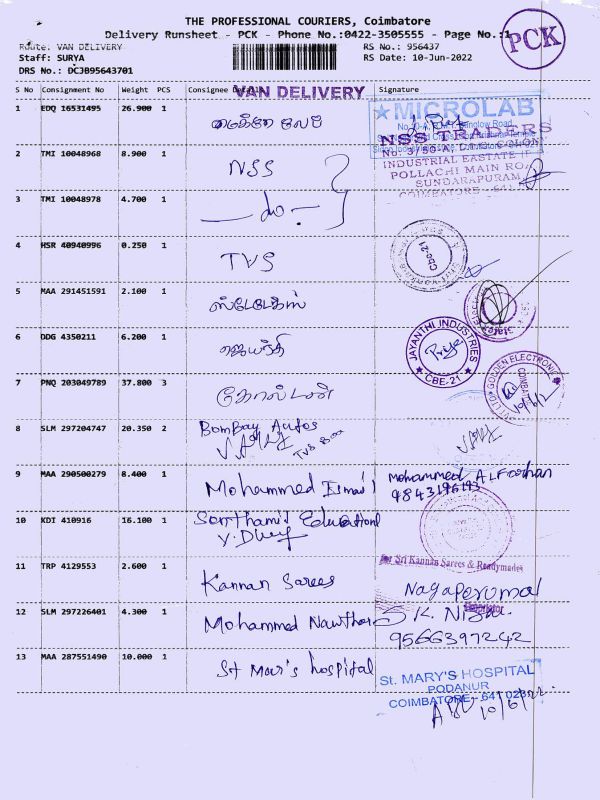 THE PROFESSIONAL COURIERS, Coimbatore
Delivery Runsheet - PCK - Phone No.:0422-3505555 - Page No.:1
PCK
Route: VAN DELIVERY
Staff: SURYA
DRS No.: DCJB95643701
RS No.: 956437
RS Date: 10-Jun-2022
S No Consignment No Weight PCS Consignee Details Signature
VAN DELIVERY
1 EDQ 16531495 26.900 1
MICROLAB
NSS TRADERS
No: 3/50-A,
INDUSTRIAL EASTATE
POLLACHI MAIN ROAD
SUNDARAPURAM
COIMBATORE - 641
2 TMI 10048968 8.900 1 NSS
3 TMI 10048978 4.700 1 do
4 HSR 40940996 0.250 1 TVS
Cbe-21
5 MAA 291451591 2.100 1
6 DDG 4350211 6.200 1 ஜெயந்தி
JAYANTHI INDUSTRIES
Priya
CBE-21
7 PNQ 203049789 37.800 3 கோல்டன்
GOLDEN ELECTRONIC
COIMBATORE
10/6/2
8 SLM 297204747 20.350 2 Bombay Autos
TVS Box
9 MAA 290500279 8.400 1 Mohammed Ismail
Mohammed AL Farhan
9843196193
10 KDI 410916 16.100 1 Senthamil Educational
11 TRP 4129553 2.600 1 Kannan Sarees
for Sri Kannan Sarees & Readymades
Nagaperumal
Proprietor
12 SLM 297226401 4.300 1 Mohammed Nawthar
S.K. Nisa
9566397242
13 MAA 287551490 10.000 1 St Mar's hospital
St. MARY'S HOSPITAL
PODANUR
COIMBATORE - 641 023
10/6/22